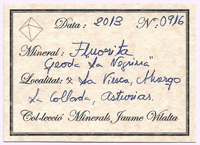 Data: 2013 Nº: 0916
Mineral: Fluorita
Geoda "La Negrina"
Localitat: La Viesca, Huergo
La Collada, Asturias.
Col·lecció Minerals Jaume Vilalta